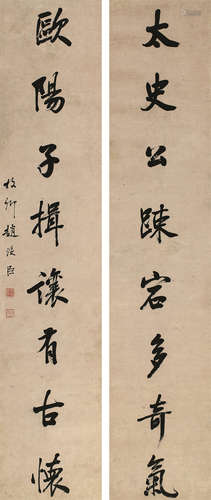 太史公疎宕多奇氣
歐陽子揖讓有古懷
牧卿趙